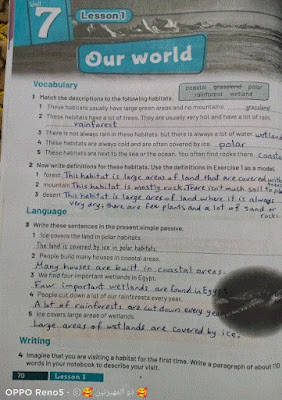 Unit
7
Lesson 1
Our world
Vocabulary
coastal grassland polar
rainforest wetland
1 Match the descriptions to the following habitats.
1 These habitats usually have large green areas and no mountains. grassland
2 These habitats have a lot of trees. They are usually very hot and have a lot of rain.
rainforest
3 There is not always rain in these habitats, but there is always a lot of water. wetland
4 These habitats are always cold and are often covered by ice. polar
5 These habitats are next to the sea or the ocean. You often find rocks there. coastal
2 Now write definitions for these habitats. Use the definitions in Exercise 1 as a model.
1 forest This habitat is large areas of land that are covered with
trees
2 mountain This habitat is mostly rock. There isn't much soil
3 desert This habitat is large area of land where it is always
very dry, there are few plants and a lot of sand or
rocks.
Language
3 Write these sentences in the present simple passive.
1 Ice covers the land in polar habitats.
The land is covered by ice in polar habitats.
2 People build many houses in coastal areas.
Many houses are built in coastal areas.
3 We find four important wetlands in Egypt.
Four important wetlands are found in Egypt.
4 People cut down a lot of our rainforests every year.
A lot of rainforests are cut down every year.
5 Ice covers large areas of wetlands.
Large areas of wetlands are covered by ice.
Writing
4 Imagine that you are visiting a habitat for the first time. Write a paragraph of about 110
words in your notebook to describe your visit.
70 Lesson 1
OPPO Reno5